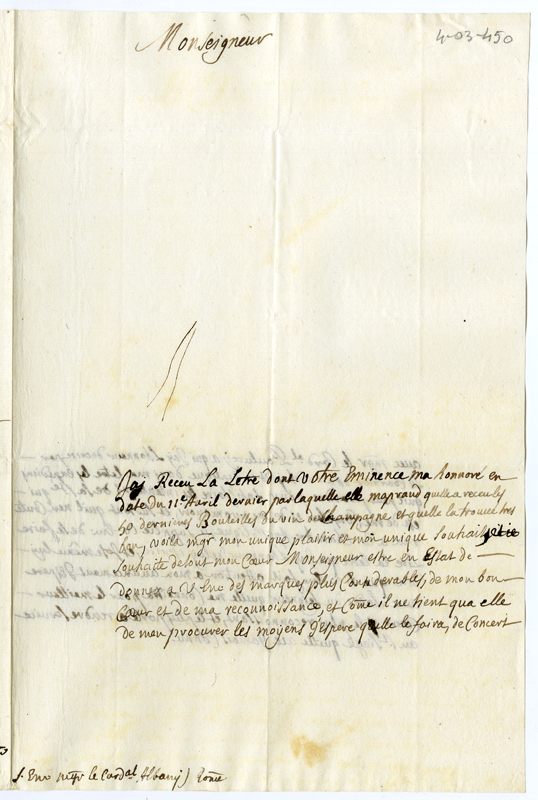 Monseigneur
4-03-450
Jay Receu La Letre dont Votre Eminence ma honnoré en
date du 11e Avril dernier par laquelle elle maprand quelle a receu les
50 dernieres Bouteilles du vin de Champagne et quelle la trouvé tres
bon, voila mgr mon unique plaisir et mon unique souhait, et ie
souhaite de tout mon Cœur Monseigneur estre en Estat de
donner a V. Em. des marques plus Considerables de mon bon
Cœur et de ma reconnoissance, et Come il ne tient qua elle
de men procurer les moyens J'Espere quelle le faira, de Concert
S. Em. le Cardal. Albany) Rome